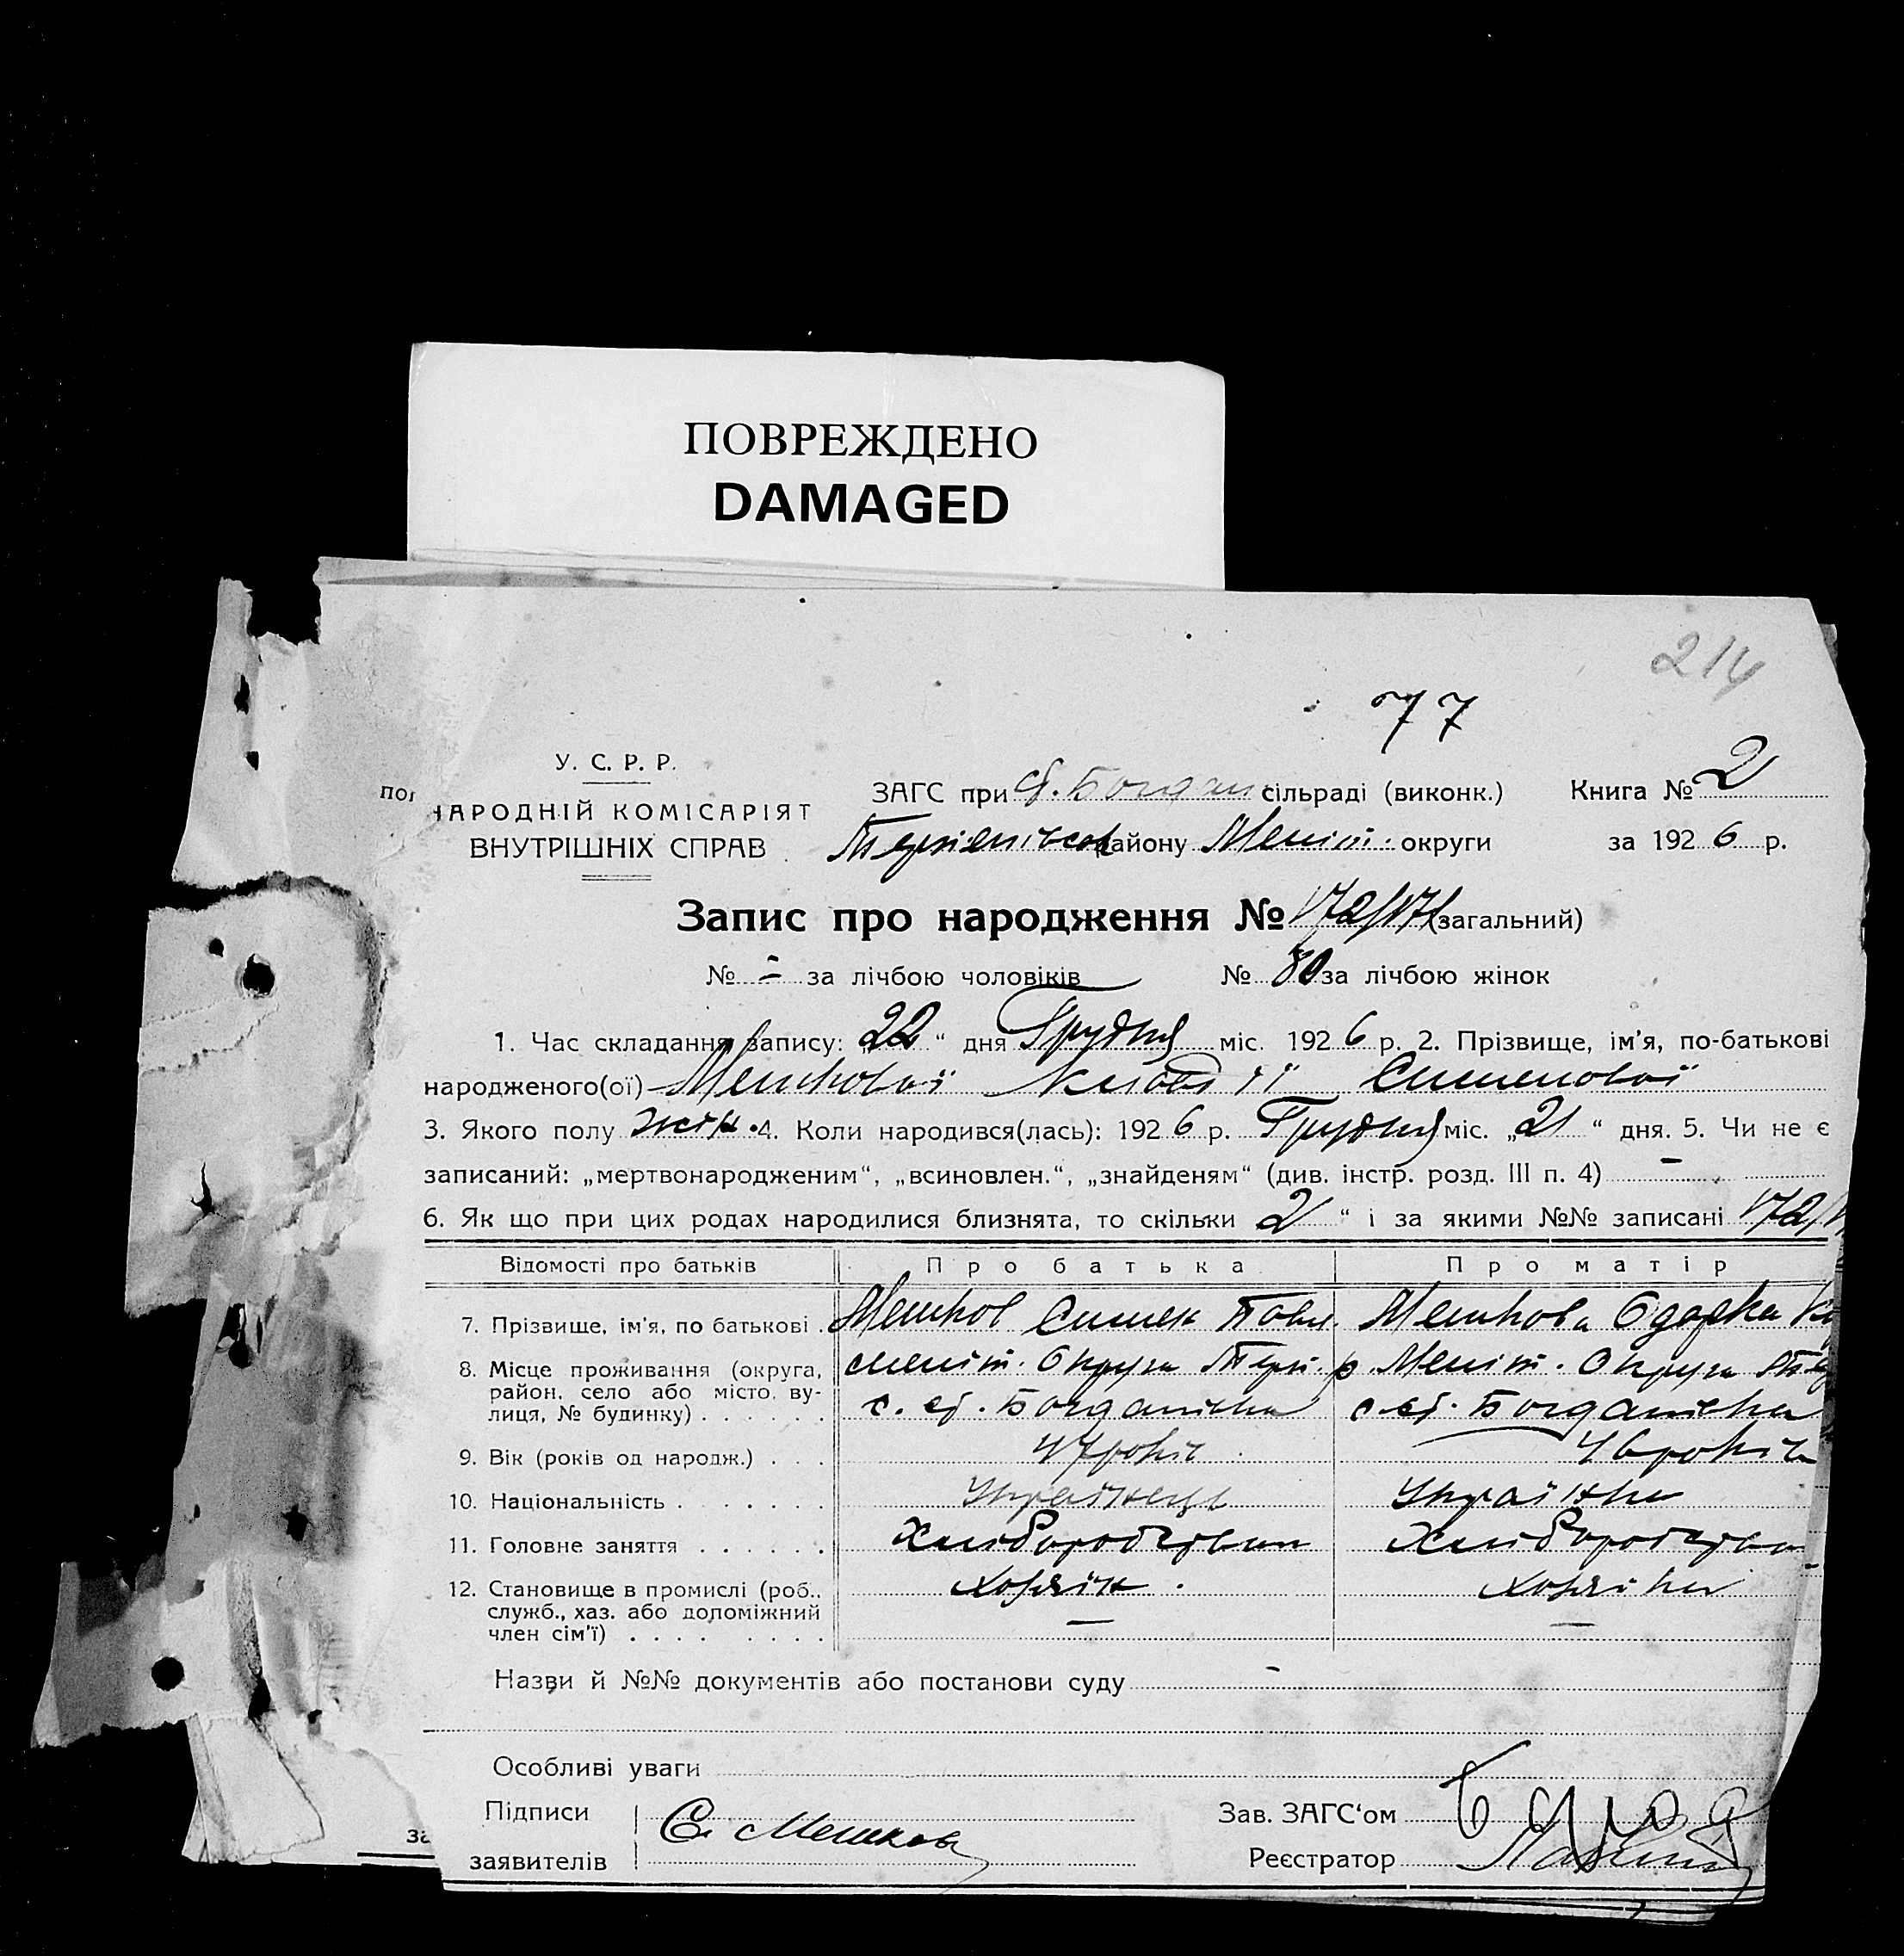 ПОВРЕЖДЕНО
DAMAGED
214
77
У. С. Р. Р.
НАРОДНІЙ КОМІСАРІЯТ
ВНУТРІШНІХ СПРАВ
ЗАГС при Богдан сільраді (виконк.)
Книга № 2
району Меліт. округи
за 1926 р.
Запис про народження № 172/171 (загальний)
№ - за лічбою чоловіків № 80 за лічбою жінок
1. Час складання запису: „22“ дня Грудня міс. 1926 р. 2. Прізвище, ім'я, по-батькові
народженого(ої) Мешковой
3. Якого полу жін. 4. Коли народився(лась): 1926 р. Грудня міс. „21“ дня. 5. Чи не є
записаний: „мертвонародженим“, „всиновлен.“, „знайденям“ (див. інстр. розд. III п. 4) -
6. Як що при цих родах народилися близнята, то скільки 2 “ і за якими №№ записані 172/
Відомості про батьків Про батька Про матір
7. Прізвище, ім'я, по батькові . Мешков Симек Павл. Мешкова Одарка
8. Місце проживання (округа, Меліт. Округи Терп. р. Меліт. Округи
район, село або місто, ву- с. Богданівка с. Богданівка
лиця, № будинку) . . . . . .
9. Вік (років од народж.) . . . 47 років 46 років
10. Національність . . . . . . Українець Українка
11. Головне заняття . . . . . . Хліборобство Хліборобство
12. Становище в промислі (роб., хозяїн. хозяйка
служб., хаз. або допоміжний — —
член сім'ї) . . . . . . . .
Назви й №№ документів або постанови суду -
Особливі уваги
Підписи
заявителів
С. Мешков
Зав. ЗАГС'ом
Реєстратор